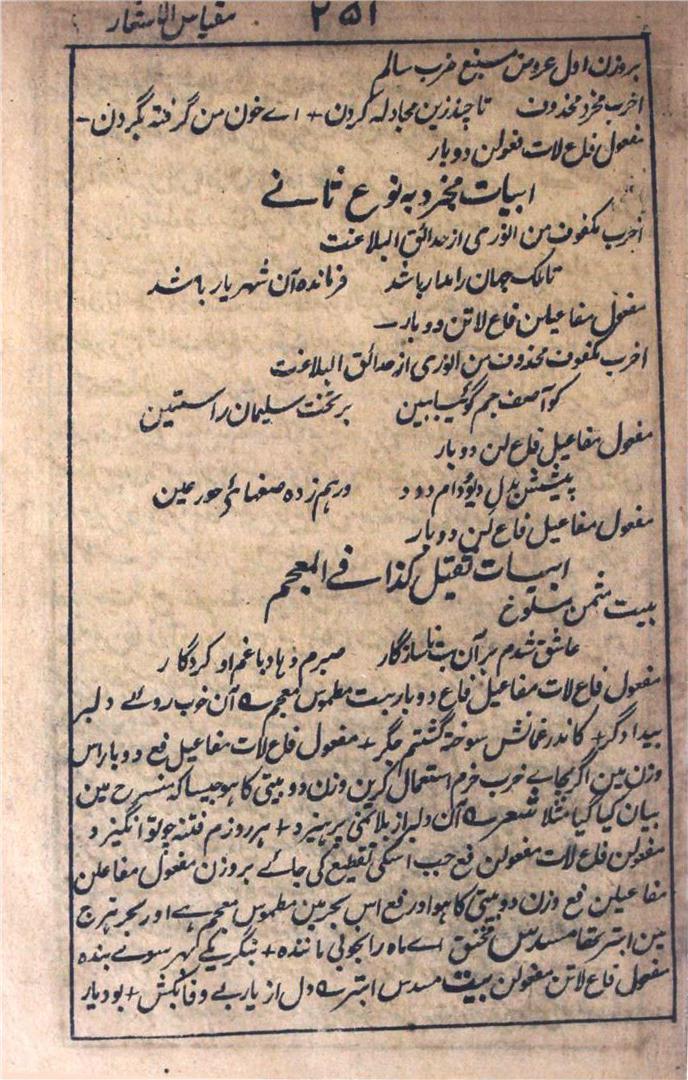 ۲۵۱ مقیاس الاشعار
بروزن اول عروض مسبغ ضرب سالم
اخرب مخرد محذوف تا چند زین مجادلہ کردن + اے خون من گرفتہ بگردن –
مفعول فاع لات فعولن دوبار
ابیات مخرد بہ نوع ثانے
اخرب مکفوف من انوری از حدائق البلاغت
تا ملک جہان را مدار باشد فرماندہ آن شہریار باشد
مفعول مفاعیلن فاع لاتن دوبار –
اخرب مکفوف محذوف من انوری از حدائق البلاغت
کو آصف جم گو بیا ببین بر تخت سلیمان راستین
مفعول مفاعیل فاع لن دوبار
پیشش بدل دیو و دام و دد درہم زدہ صفہائے حور عین
مفعول مفاعیل فاع لن دوبار
ابیات ثقیل کذا فے المعجم
بیت مثمن مسلوخ
عاشق شدم بر آن بت ناسازگار صبرم دہاد با غم او کردگار
مفعول فاع لات مفاعیل فاع دوبار بیت مطموس معجم ے آن خوب روے دلبر
بیدادگر + کاندر غمانش سوختہ گشتم جگر + مفعول فاع لات مفاعیل فع دوبار اس
وزن مین اگر بجاے خرب خرم استعمال کرین وزن دو بیتی کا ہو جیسا کہ منسرح مین
بیان کیا گیا مثلا شعر ے آن دلبر از بلا نمی پرہیزد + ہر روزم فتنہ چو تو انگیزد
مفعولن فاع لات مفعولن فع جب اسکی تقطیع کی جاے بروزن مفعول مفاعلن
مفاعیلن فع وزن دوبیتی کا ہو اور فع اس بحر مین مطموس معجم ہے اور بحر ہزج
مین ابتر تھا مسدس مخنق اے ماہ را بخوبی مانندہ + بنگر یکے بمہر سوے بندہ
مفعول فاع لاتن مفعولن بیت مسدس ابتر ے دل از یار بے وفا بکش + بود یار